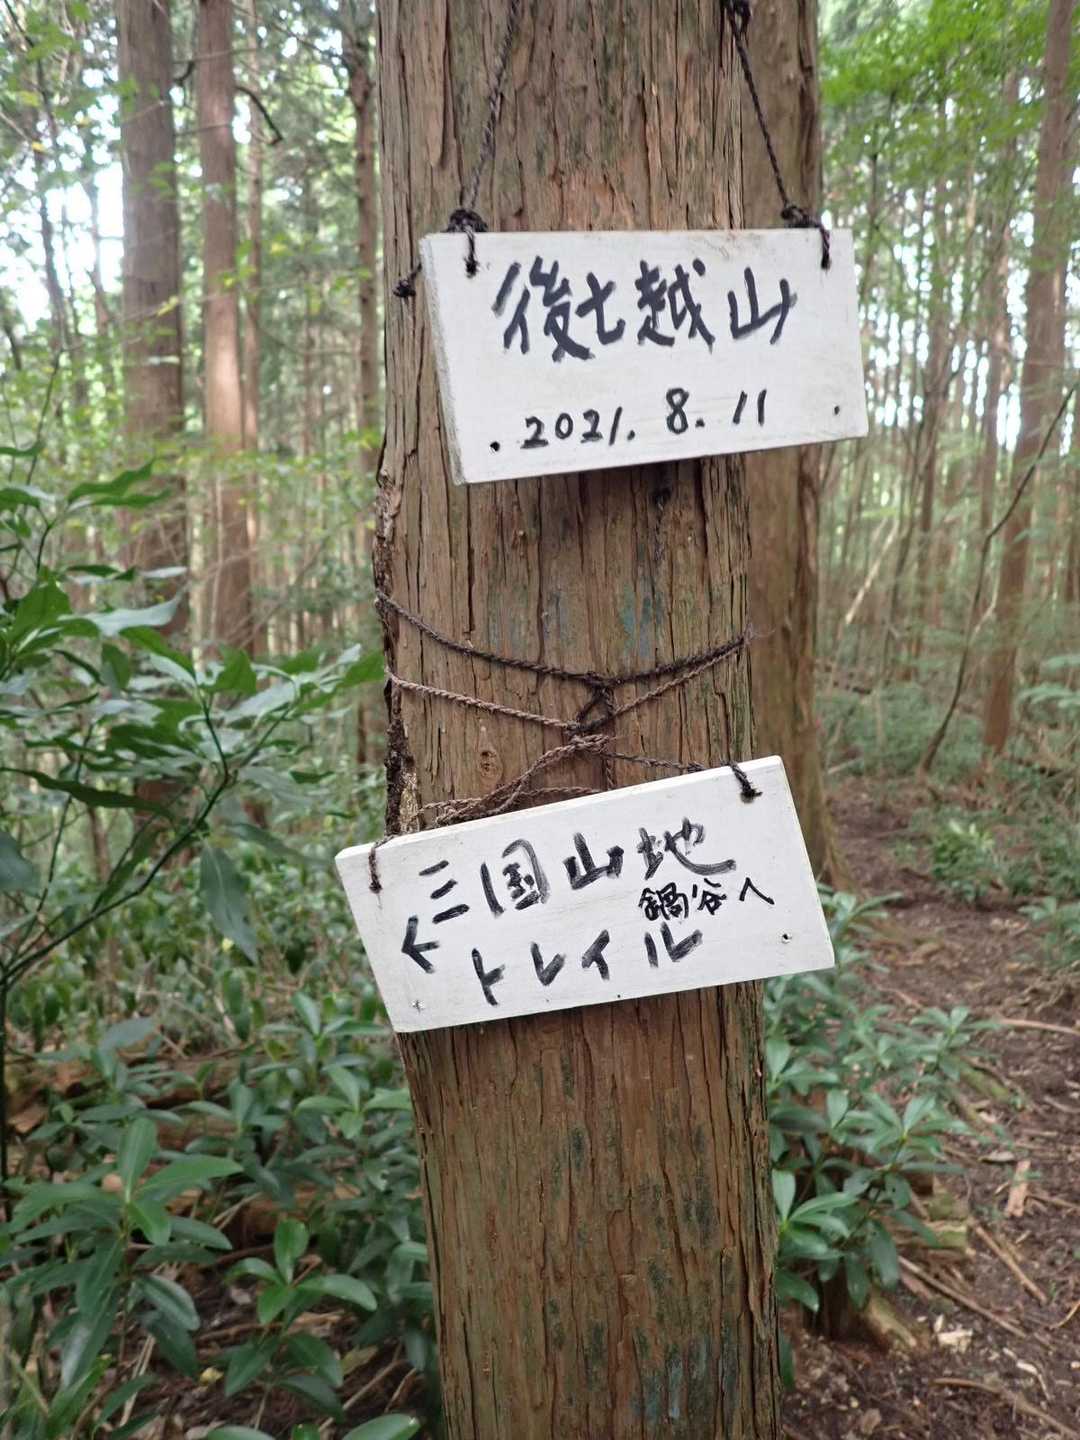 後七越山
2021. 8. 11
三国山地
鍋谷へ
← トレイル